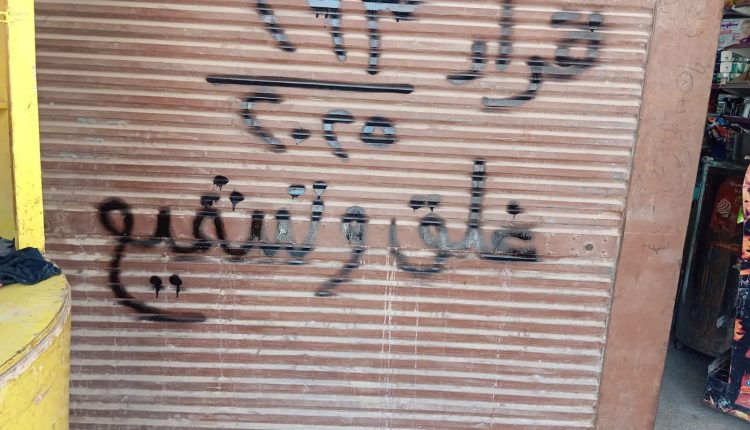 قرار
٢٠٢٥
غلق وتشميع